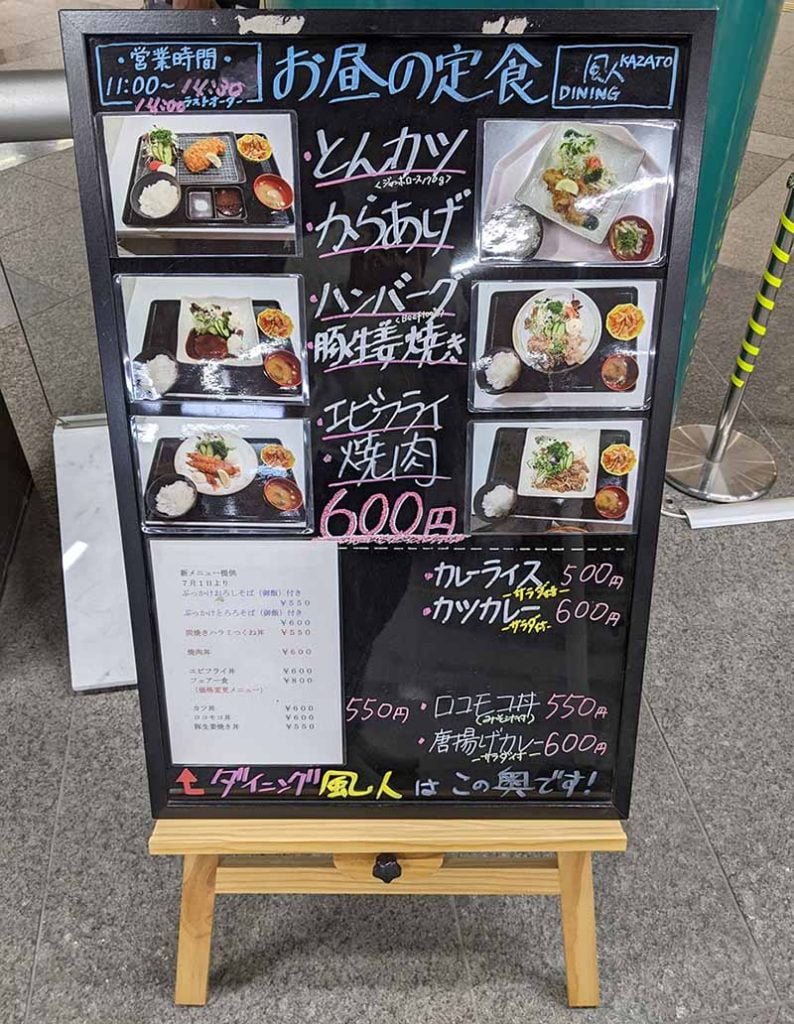 ・営業時間・
11:00～14:30
14:00ラストオーダー
お昼の定食
風人KAZATO
DINING
・とんカツ
・からあげ
・ハンバーグ
・豚生姜焼き
・エビフライ
・焼肉
600円
新メニュー提供
7月1日より
ぶっかけおろしそば（御飯）付き
￥550
ぶっかけとろろそば（御飯）付き
￥600
炭焼きハラミつくね丼 ￥550
焼肉丼 ￥600
エビフライ丼 ￥600
フェアー食 ￥800
（価格変更メニュー）
カツ丼 ￥600
ロコモコ丼 ￥600
豚生姜焼き丼 ￥550
・カレーライス 500円
ーサラダ付ー
・カツカレー 600円
ーサラダ付ー
550円
・ロコモコ丼 550円
・唐揚げカレー 600円
ーサラダ付ー
↑ダイニング風人はこの奥です!